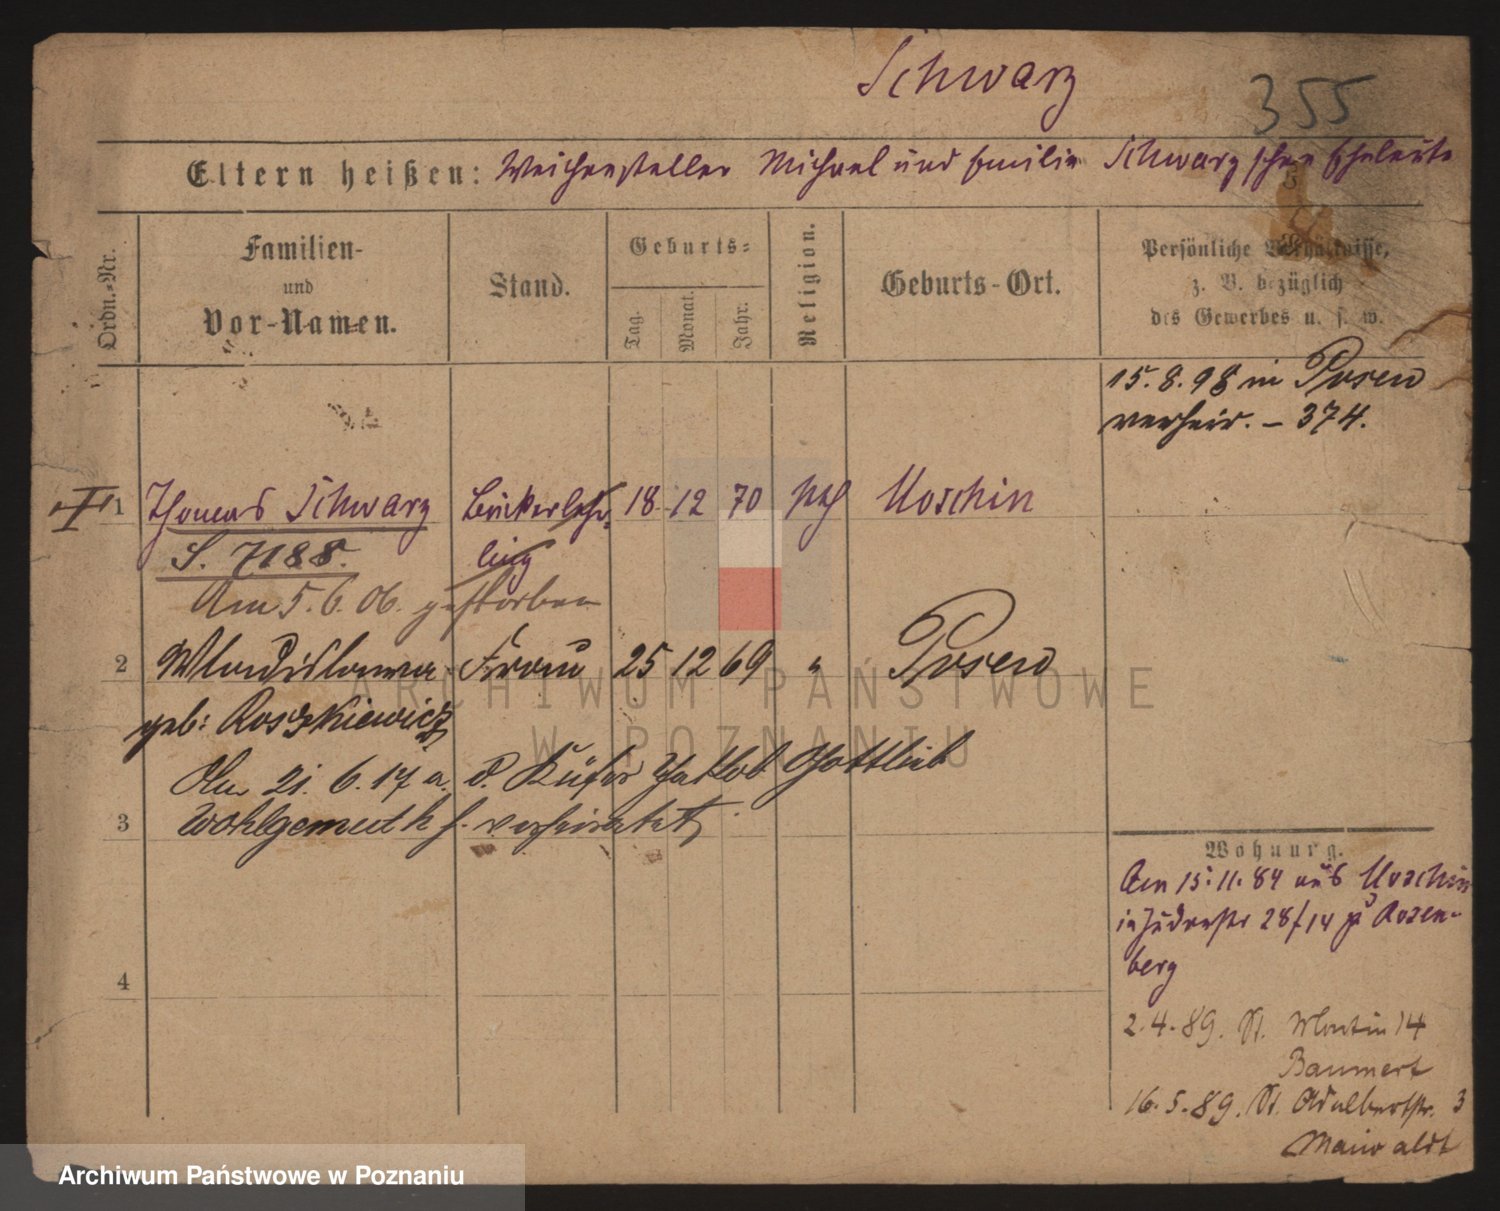 Schwarz
355
Eltern heißen: Weichensteller Michael und Emilie Schwarz'schen Eheleute
Ordn.-Nr.
Familien-
und
Vor-Namen.
Stand.
Geburts-
Tag.
Monat.
Jahr.
Religion.
Geburts-Ort.
Persönliche Verhältnisse,
z. B. bezüglich
des Gewerbes u. s. w.
15.8.98 in Posen
verheir. – 374.
1 Thomas Schwarz
S. 7188.
Am 5.6.06. gestorben
ling
18 12 70 kth Moschin
2 Wladislawa Frau 25 12 69 " Posen
geb: Roszkiewicz
Am 21. 6. 17 a. d. Küfer Jakob Gottlieb
3 Wohlgemuth h. verheiratet
4
Wohnung.
Am 15.11.84 aus Moschin
in Judenstr 28/14 zu Rosen-
berg
2.4.89. St. Martin 14
Baumert
16.5.89. St. Adalbertstr. 3
Maiwaldt
ARCHIWUM PAŃSTWOWE
W POZNANIU
Archiwum Państwowe w Poznaniu